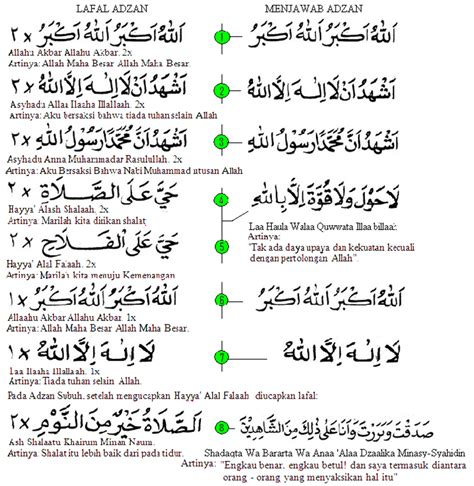 LAFAL ADZAN MENJAWAB ADZAN
اَللهُ اَكْبَرُ اَللهُ اَكْبَرُ ٢x 1 اَللهُ اَكْبَرُ اَللهُ اَكْبَرُ
Allaahu Akbar Allahu Akbar. 2x
Artinya: Allah Maha Besar Allah Maha Besar
اَشْهَدُ اَنْ لَا اِلٰهَ اِلَّا اللهُ ٢x 2 اَشْهَدُ اَنْ لَا اِلٰهَ اِلَّا اللهُ
Asyhada Allaa Ilaaha Illallaah. 2x
Artinya: Aku bersaksi bahwa tiada tuhan selain Allah
اَشْهَدُ اَنَّ مُحَمَّدًا رَسُوْلُ اللهِ ٢x 3 اَشْهَدُ اَنَّ مُحَمَّدًا رَسُوْلُ اللهِ
Asyhadu Anna Muhammadar Rasulullah. 2x
Artinya: Aku Bersaksi Bahwa Nabi Muhammad utusan Allah
حَيَّ عَلَى الصَّلَاةِ ٢x 4 لَاحَوْلَ وَلَا قُوَّةَ اِلَّا بِاللهِ
Hayya' Alash Shalaah. 2x
Artinya: Marilah kita dirikan shalat
Laa Haula Walaa Quwwata Illaa billaah
Artinya:
حَيَّ عَلَى الْفَلَاحِ ٢x 5 "Tak ada daya upaya dan kekuatan kecuali
dengan pertolongan Allah".
Hayya' Alal Falaah. 2x
Artinya: Marilah kita menuju Kemenangan
اَللهُ اَكْبَرُ اَللهُ اَكْبَرُ ١x 6 اَللهُ اَكْبَرُ اَللهُ اَكْبَرُ
Allaahu Akbar Allahu Akbar. 1x
Artinya: Allah Maha Besar Allah Maha Besar.
لَا اِلٰهَ اِلَّا اللهُ ١x 7 لَا اِلٰهَ اِلَّا اللهُ
Laa Ilaaha Illallaah. 1x
Artinya: Tiada tuhan selain Allah.
Pada Adzan Subuh, setelah mengucapkan Hayya' Alal Falaah diucapkan lafal:
اَلصَّلَاةُ خَيْرٌ مِنَ النَّوْمِ ٢x 8 صَدَقْتَ وَبَرَرْتَ وَاَنَا عَلٰى ذٰلِكَ مِنَ الشَّاهِدِيْنَ
Ash Shalaatu Khairum Minan Naum.
Artinya: Shalat itu lebih baik dari pada tidur.
Shadaqta Wa Bararta Wa Anaa 'Alaa Dzaalika Minasy-Syahidin
Artinya: "Engkau benar, engkau betul! dan saya termasuk diantara
orang - orang yang menyaksikan hal itu"